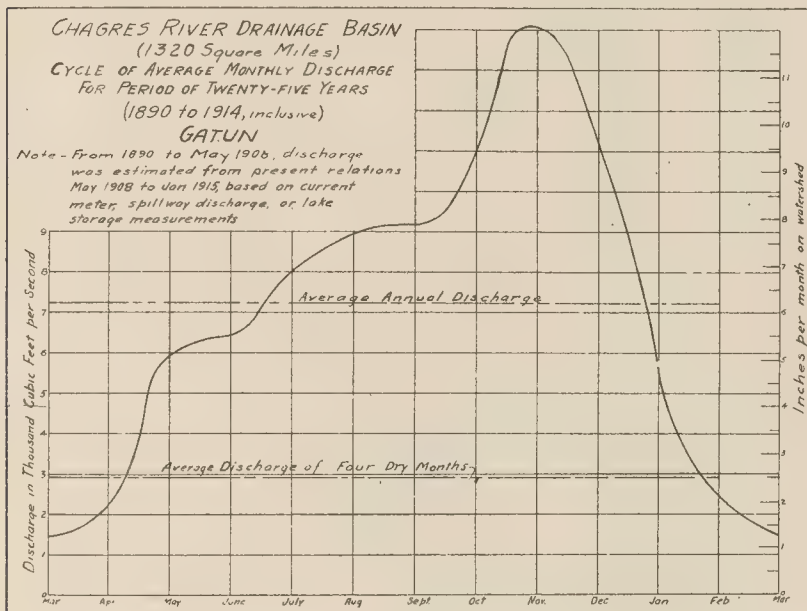 CHAGRES RIVER DRAINAGE BASIN
(1320 Square Miles)
CYCLE OF AVERAGE MONTHLY DISCHARGE
FOR PERIOD OF TWENTY-FIVE YEARS
(1890 to 1914, inclusive)
GATUN
Note - From 1890 to May 1908, discharge
was estimated from present relations
May 1908 to Jan 1915, based on current
meter, spillway discharge, or lake
storage measurements
Average Annual Discharge
Average Discharge of Four Dry Months
Discharge in Thousand Cubic Feet per Second
9
8
7
6
5
4
3
2
1
0
Inches per month on watershed
11
10
9
8
7
6
5
4
3
2
1
0
Mar Apr May June July Aug Sept. Oct Nov. Dec Jan Feb Mar